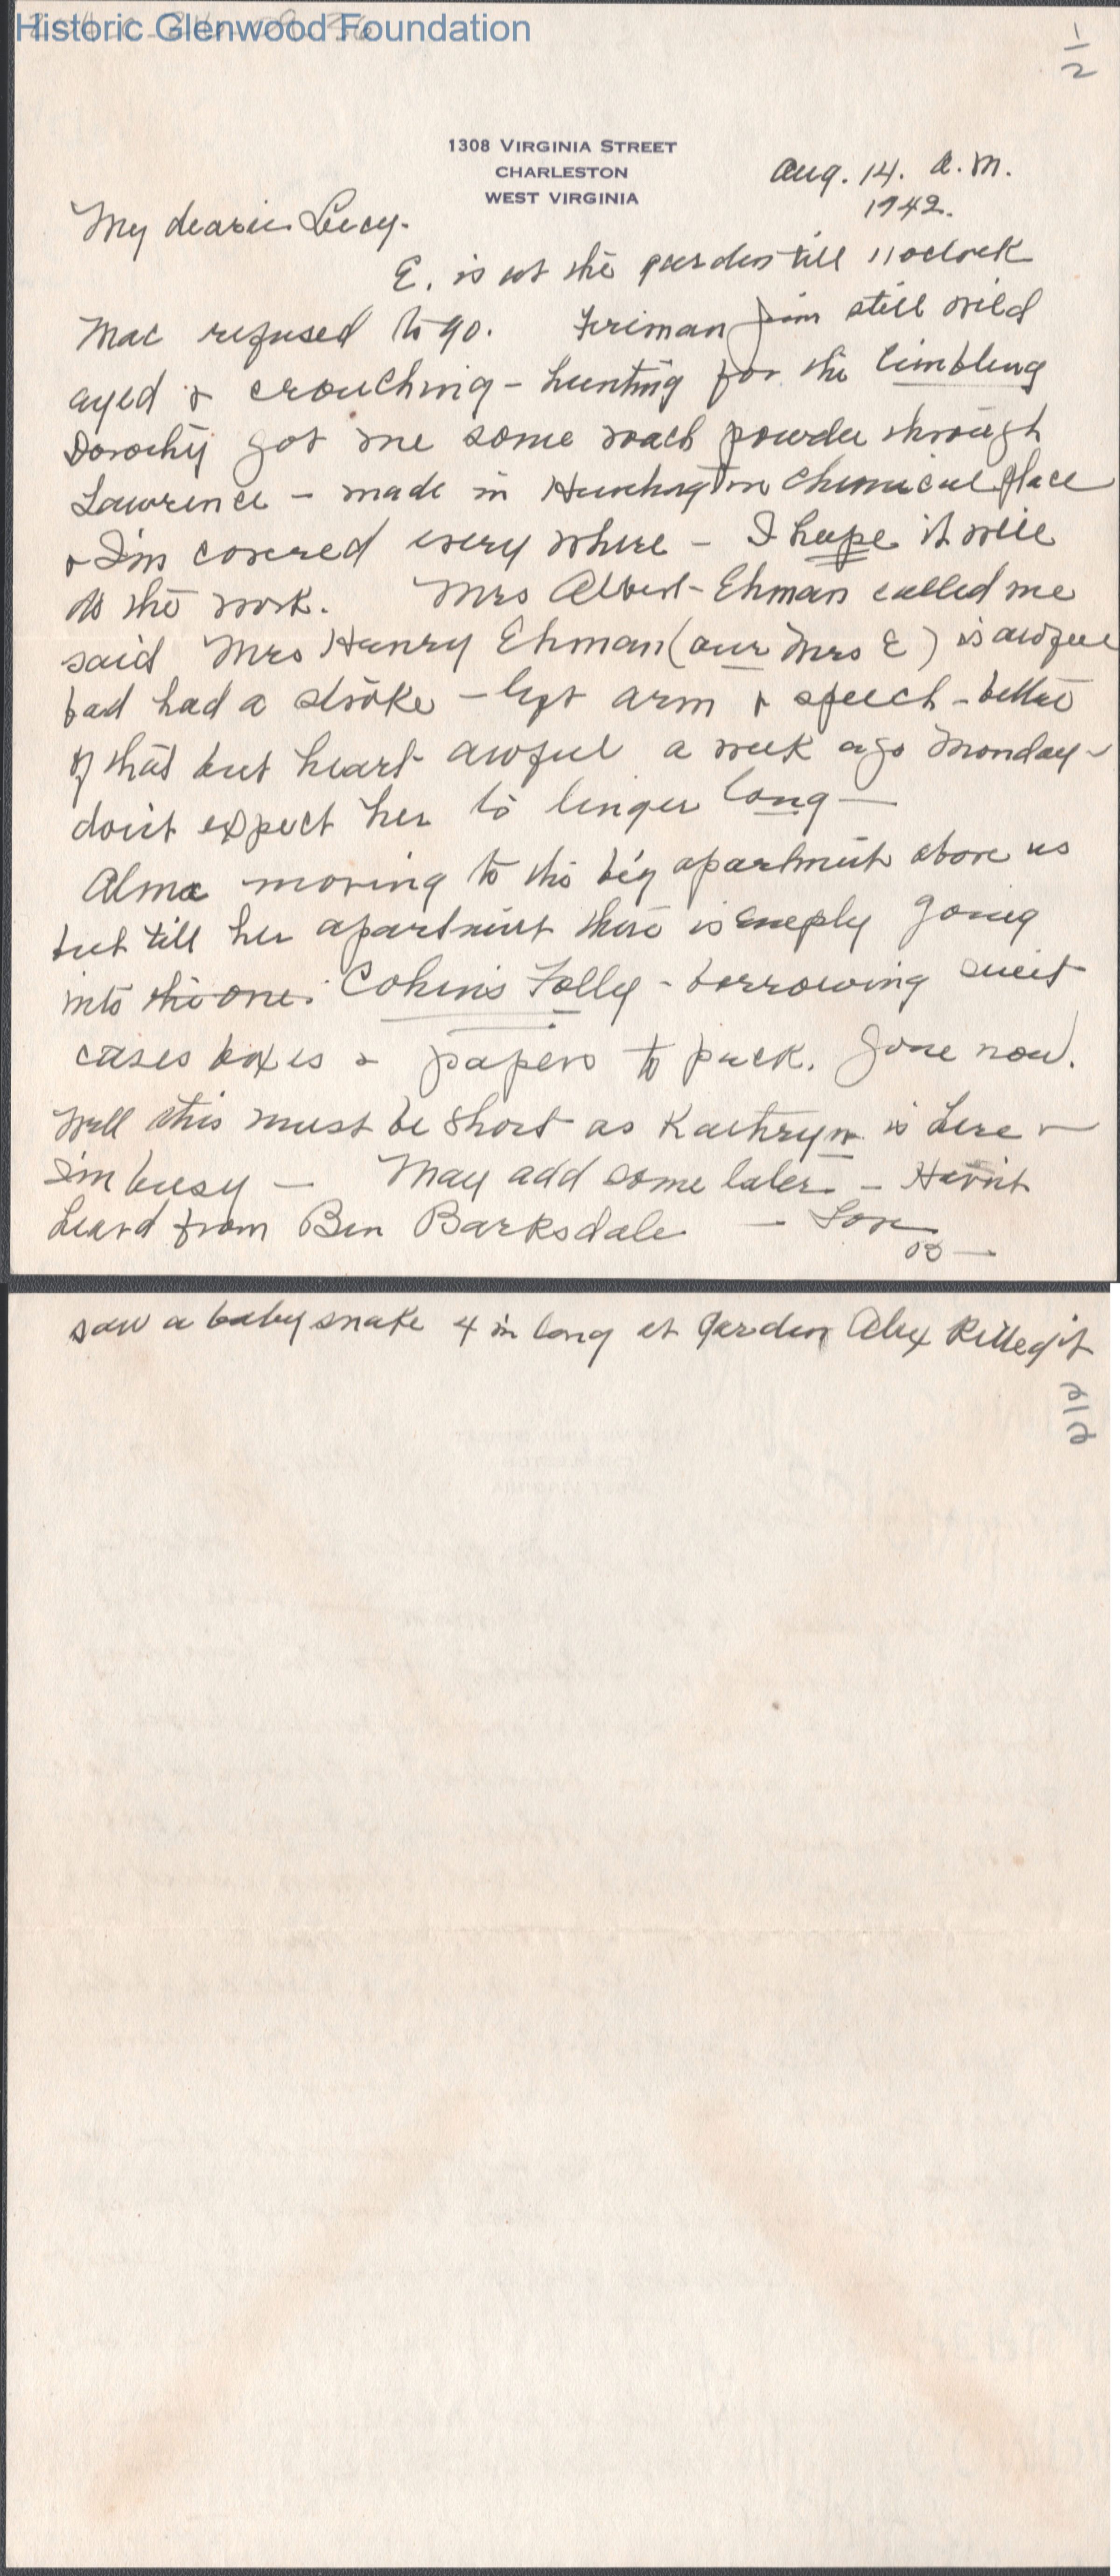 Historic Glenwood Foundation
1/2
1308 VIRGINIA STREET
CHARLESTON
WEST VIRGINIA
Aug. 14. A.M.
1942.
My dearie Lucy.
E. is at the garden till 11 oclock
Mac refused to go. still wild
ayed & crouching - hunting for the
Dorothy got me some roach powder through
Lawrence - made in Huntington Chemical place
& I'm covered every where - I hope it will
do the work. Mrs Albert Ehman called me
said Mrs Henry Ehman (our Mrs E) is awful
bad had a stroke - left arm & speech - better
of that but heart awful a week ago Monday -
don't expect her to linger long -
Alma moving to the big apartment above us
but till her apartment there is empty going
into the one. Cohen's Folly - borrowing suit
cases boxes & papers to pack. Gone now.
Well this must be short as Kathryn is here &
I'm busy - May add some later - Hav'nt
heard from Ben Barksdale - Love
B -
saw a baby snake 4 in long at garden Alex killed it
2/2